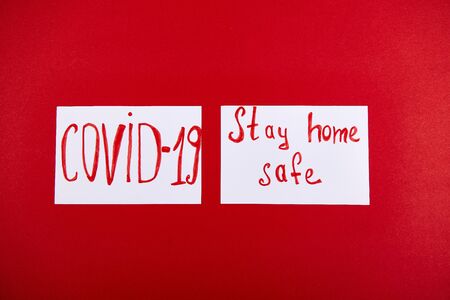 COViD-19
Stay home
safe